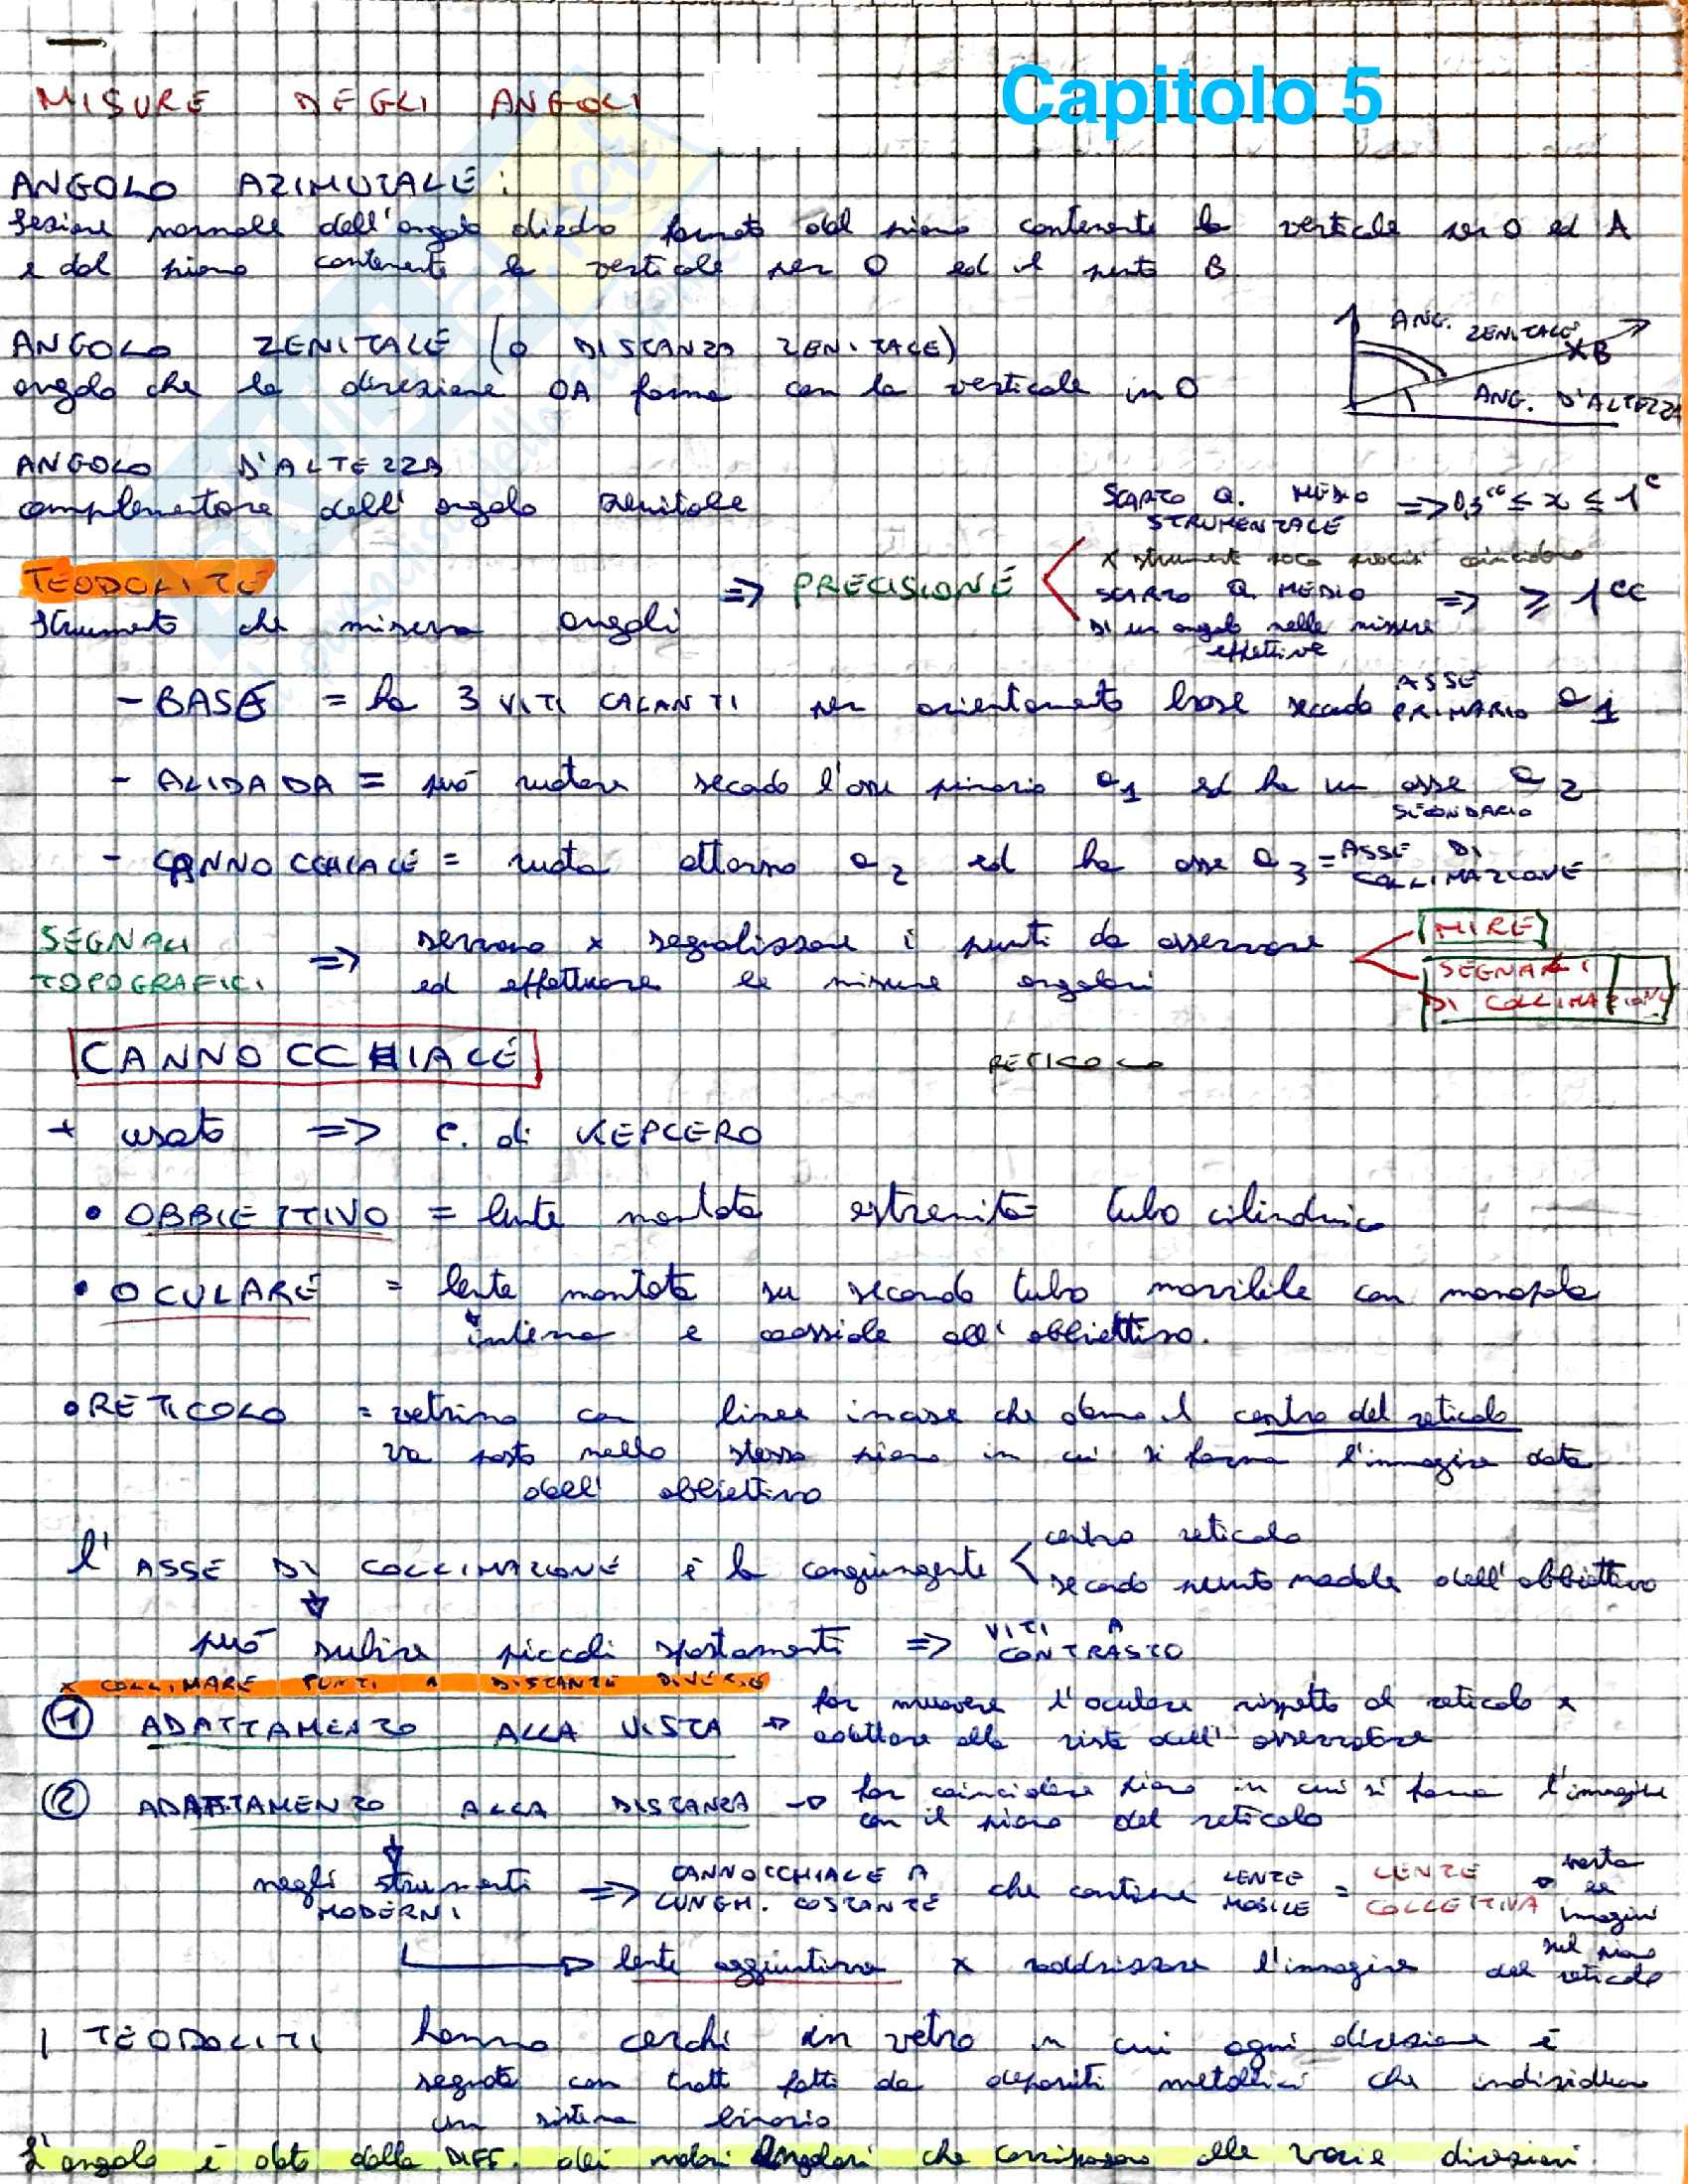 Capitolo 5
MISURE DEGLI ANGOLI
ANGOLO AZIMUTALE:
Sezione normale dell'angolo diedro formato dal piano contenente la verticale per O ed A
e dal piano contenente la verticale per O ed il punto B
ANGOLO ZENITALE (O DISTANZA ZENITALE)
angolo che la direzione OA forma con la verticale in O
ANG. ZENITALE
B
ANG. D'ALTEZZA
ANGOLO D'ALTEZZA
complementare dell'angolo zenitale
TEODOLITE
strumento che misura angoli
=> PRECISIONE
SCARTO Q. MEDIO
STRUMENTALE => 0,3cc ≤ x ≤ 1c
x strumenti poco precisi coincidono
SCARTO Q. MEDIO => ≥ 1cc
DI un angolo nelle misure
effettive
- BASE = ha 3 VITI CALANTI per orientamento base secondo ASSE PRIMARIO a1
- ALIDADA = può ruotare secondo l'asse primario a1 ed ha un asse a2
SECONDARIO
- CANNOCCHIALE = ruota attorno a2 ed ha asse a3 = ASSE DI COLLIMAZIONE
SEGNALI
TOPOGRAFICI => servono x segnalizzare i punti da osservare
ed effettuare le misure angolari
MIRE
SEGNALI
DI COLLIMAZIONE
CANNOCCHIALE
RETICOLO
+ usato => C. di KEPLERO
• OBBIETTIVO = lente montata estremità tubo cilindrico
• OCULARE = lente montata su secondo tubo movibile con manopola
interna e coassiale all'obbiettivo.
• RETICOLO = vetrino con linee incise che danno il centro del reticolo
va posto nello stesso piano in cui si forma l'immagine data
dall' obbiettivo
l'ASSE DI COLLIMAZIONE è la congiungente < centro reticolo
secondo punto nodale dell'obbiettivo
può subire piccoli spostamenti => VITI A CONTRASTO
x COLLIMARE PUNTI A DISTANZE DIVERSE
1 ADATTAMENTO ALLA VISTA -> far muovere l'oculare rispetto al reticolo x
adattare alla vista dell'osservatore
2 ADATTAMENTO ALLA DISTANZA -> far coincidere piano in cui si forma l'immagine
con il piano del reticolo
negli strumenti MODERNI => CANNOCCHIALE A LUNGH. COSTANTE che contiene LENTE MOBILE = LENTE COLLETTIVA -> porta le immagini
sul piano
del reticolo
lente aggiuntiva x raddrizzare l'immagine
I TEODOLITI hanno cerchi in vetro in cui ogni direzione è
segnata con tratti fatti da depositi metallici che individuano
un sistema binario
L'angolo è dato dalla DIFF. dei valori Angolari che corrispondono alle varie direzioni